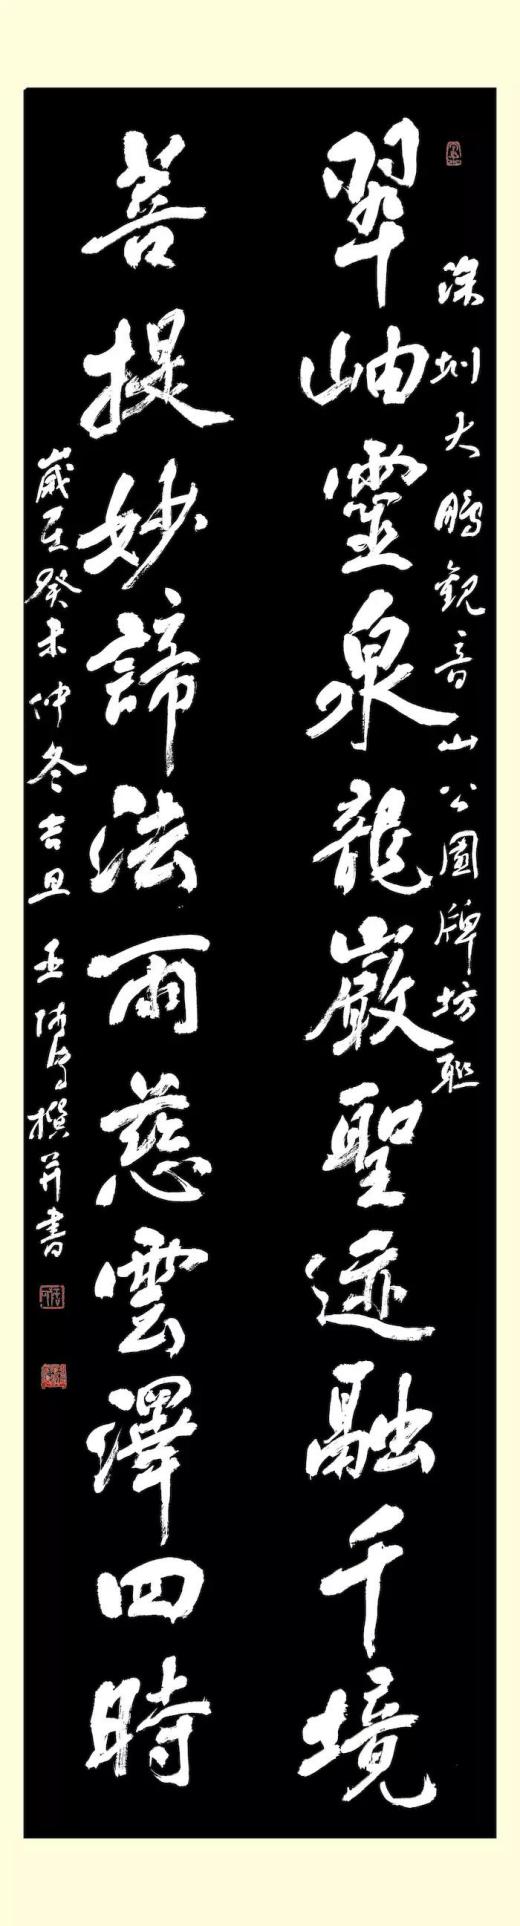 深圳大鵬觀音山公園牌坊聯
翠岫靈泉龍巖聖迹融千境
菩提妙諦法雨慈雲澤四時
歲在癸未仲冬吉旦 王撰并書